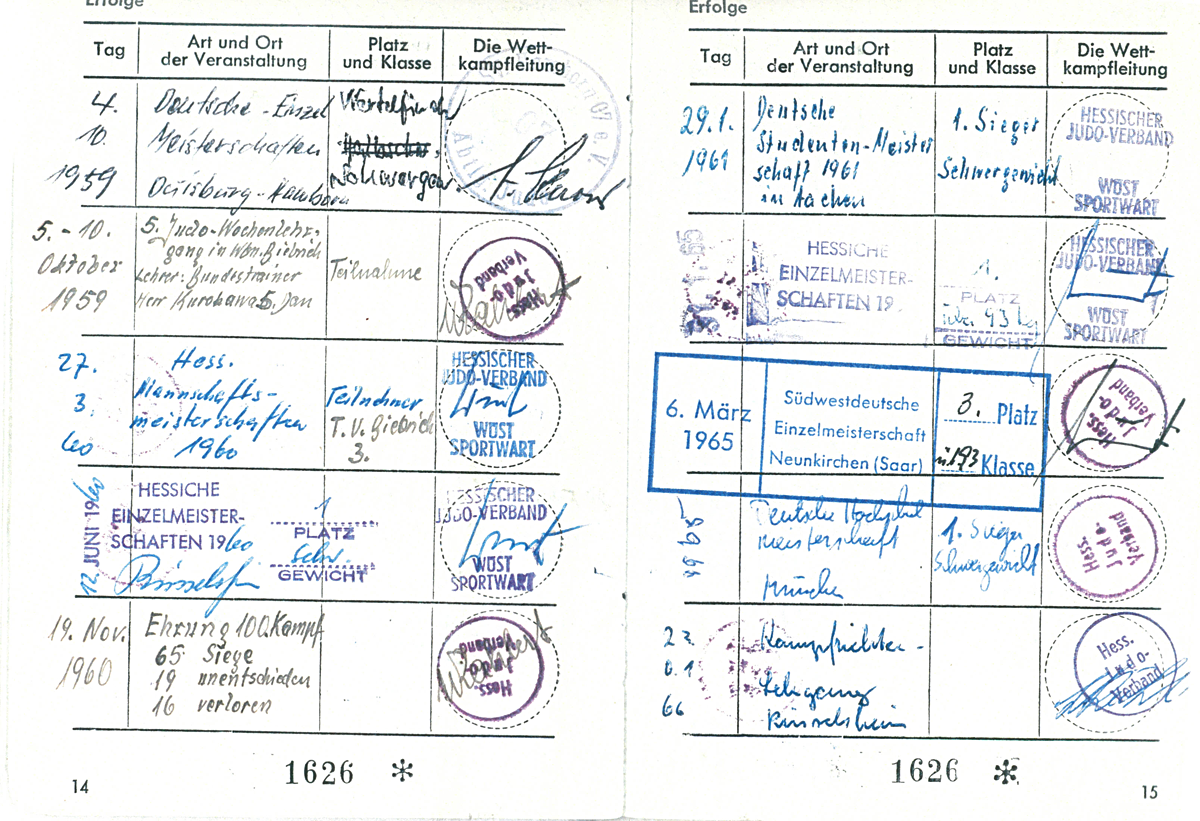 Erfolge
Tag
Art und Ort
der Veranstaltung
Platz
und Klasse
Die Wett-
kampfleitung
4.
10.
1959
Deutsche - Einzel
Meisterschaften
Duisburg - Hamborn
Viertelfinale
5. - 10.
Oktober
1959
5. Judo-Wochenlehr-
gang in Wbn. Biebrich
Lehrer: Bundestrainer
Herr Kurohawa 5. Dan
Teilnahme
Hess.
Judo
Verband
27.
3.
60
Hess.
Mannschafts-
meisterschaften
1960
Teilnehmer
T. V. Biebrich
3.
HESSISCHER
JUDO-VERBAND
WÜST
SPORTWART
12. JUNI 1960
HESSICHE
EINZELMEISTER-
SCHAFTEN 1960
1
PLATZ
Schw.
GEWICHT
HESSISCHER
JUDO-VERBAND
WÜST
SPORTWART
19. Nov.
1960
Ehrung 100. Kampf
65 Siege
19 unentschieden
16 verloren
Hess.
Judo
Verband
1626 *
14
Erfolge
Tag
Art und Ort
der Veranstaltung
Platz
und Klasse
Die Wett-
kampfleitung
29.1.
1961
Deutsche
Studenten-Meister
schaft 1961
in Aachen
1. Sieger
Schwergewicht
HESSISCHER
JUDO-VERBAND
WÜST
SPORTWART
HESSICHE
EINZELMEISTER-
SCHAFTEN 19
1.
PLATZ
über 93 kg
GEWICHT
HESSISCHER
JUDO-VERBAND
WÜST
SPORTWART
6. März
1965
Südwestdeutsche
Einzelmeisterschaft
Neunkirchen (Saar)
3. Platz
ü. 93 Klasse
Hess.
Judo-
Verband
Deutsche Hochschul
meisterschaft
München
1. Sieger
Schwergewicht
Hess.
Judo-
Verband
23
01
66
Kampfrichter-
Lehrgang
Rüsselsheim
Hess.
Judo-
Verband
1626 *
15